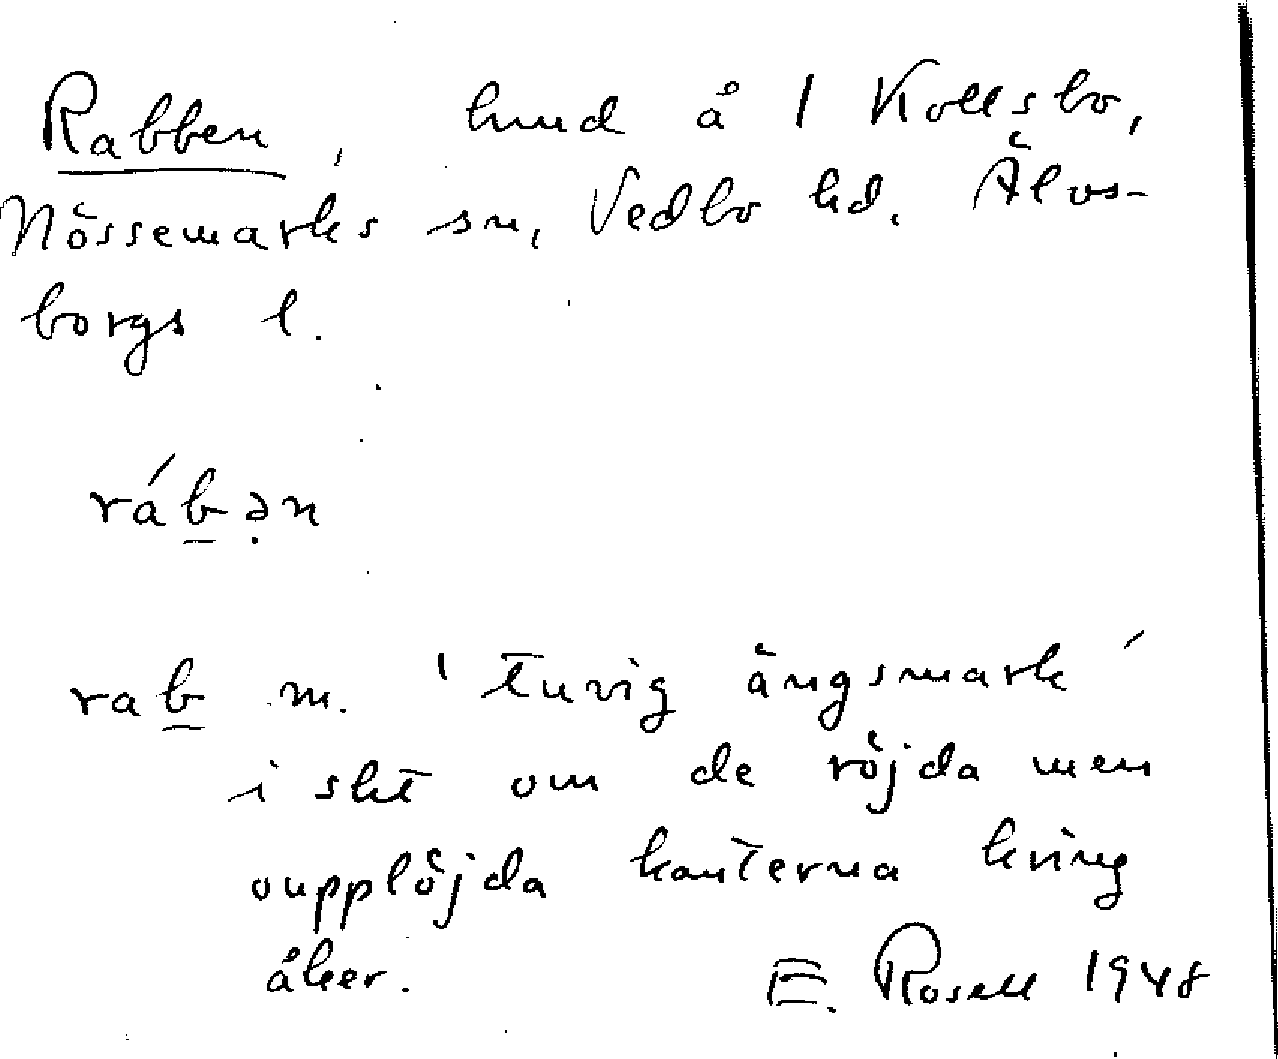 Rabben, hmd å 1 Kollsbo,
Nössemarks sn, Vedbo hd. Älvs-
borgs l.
rábə̣n
rab m. 'tuvig ängsmark'
i sht om de röjda men
oupplöjda kanterna kring
åker. E. Rosell 1948